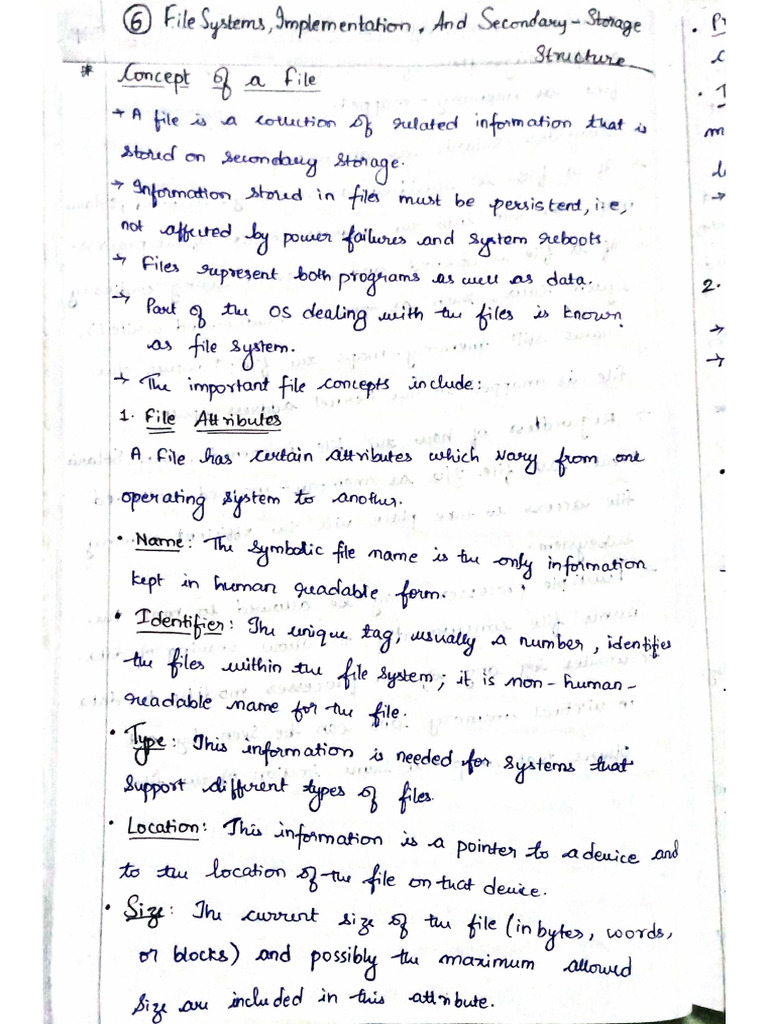 ⑥ File Systems, Implementation, And Secondary-Storage
Structure
* Concept of a file
→ A file is a collection of related information that is
stored on secondary storage.
→ Information stored in files must be persistent, i.e,
not affected by power failures and system reboots.
→ Files represent both programs as well as data.
→ Part of the OS dealing with the files is known
as file system.
→ The important file concepts include:
1. File Attributes
A file has certain attributes which vary from one
operating system to another.
• Name: The symbolic file name is the only information
kept in human readable form.
• Identifier: The unique tag, usually a number, identifies
the files within the file system; it is non-human-
readable name for the file.
• Type: This information is needed for systems that
support different types of files.
• Location: This information is a pointer to a device and
to the location of the file on that device.
• Size: The current size of the file (in bytes, words,
or blocks) and possibly the maximum allowed
size are included in this attribute.
2.